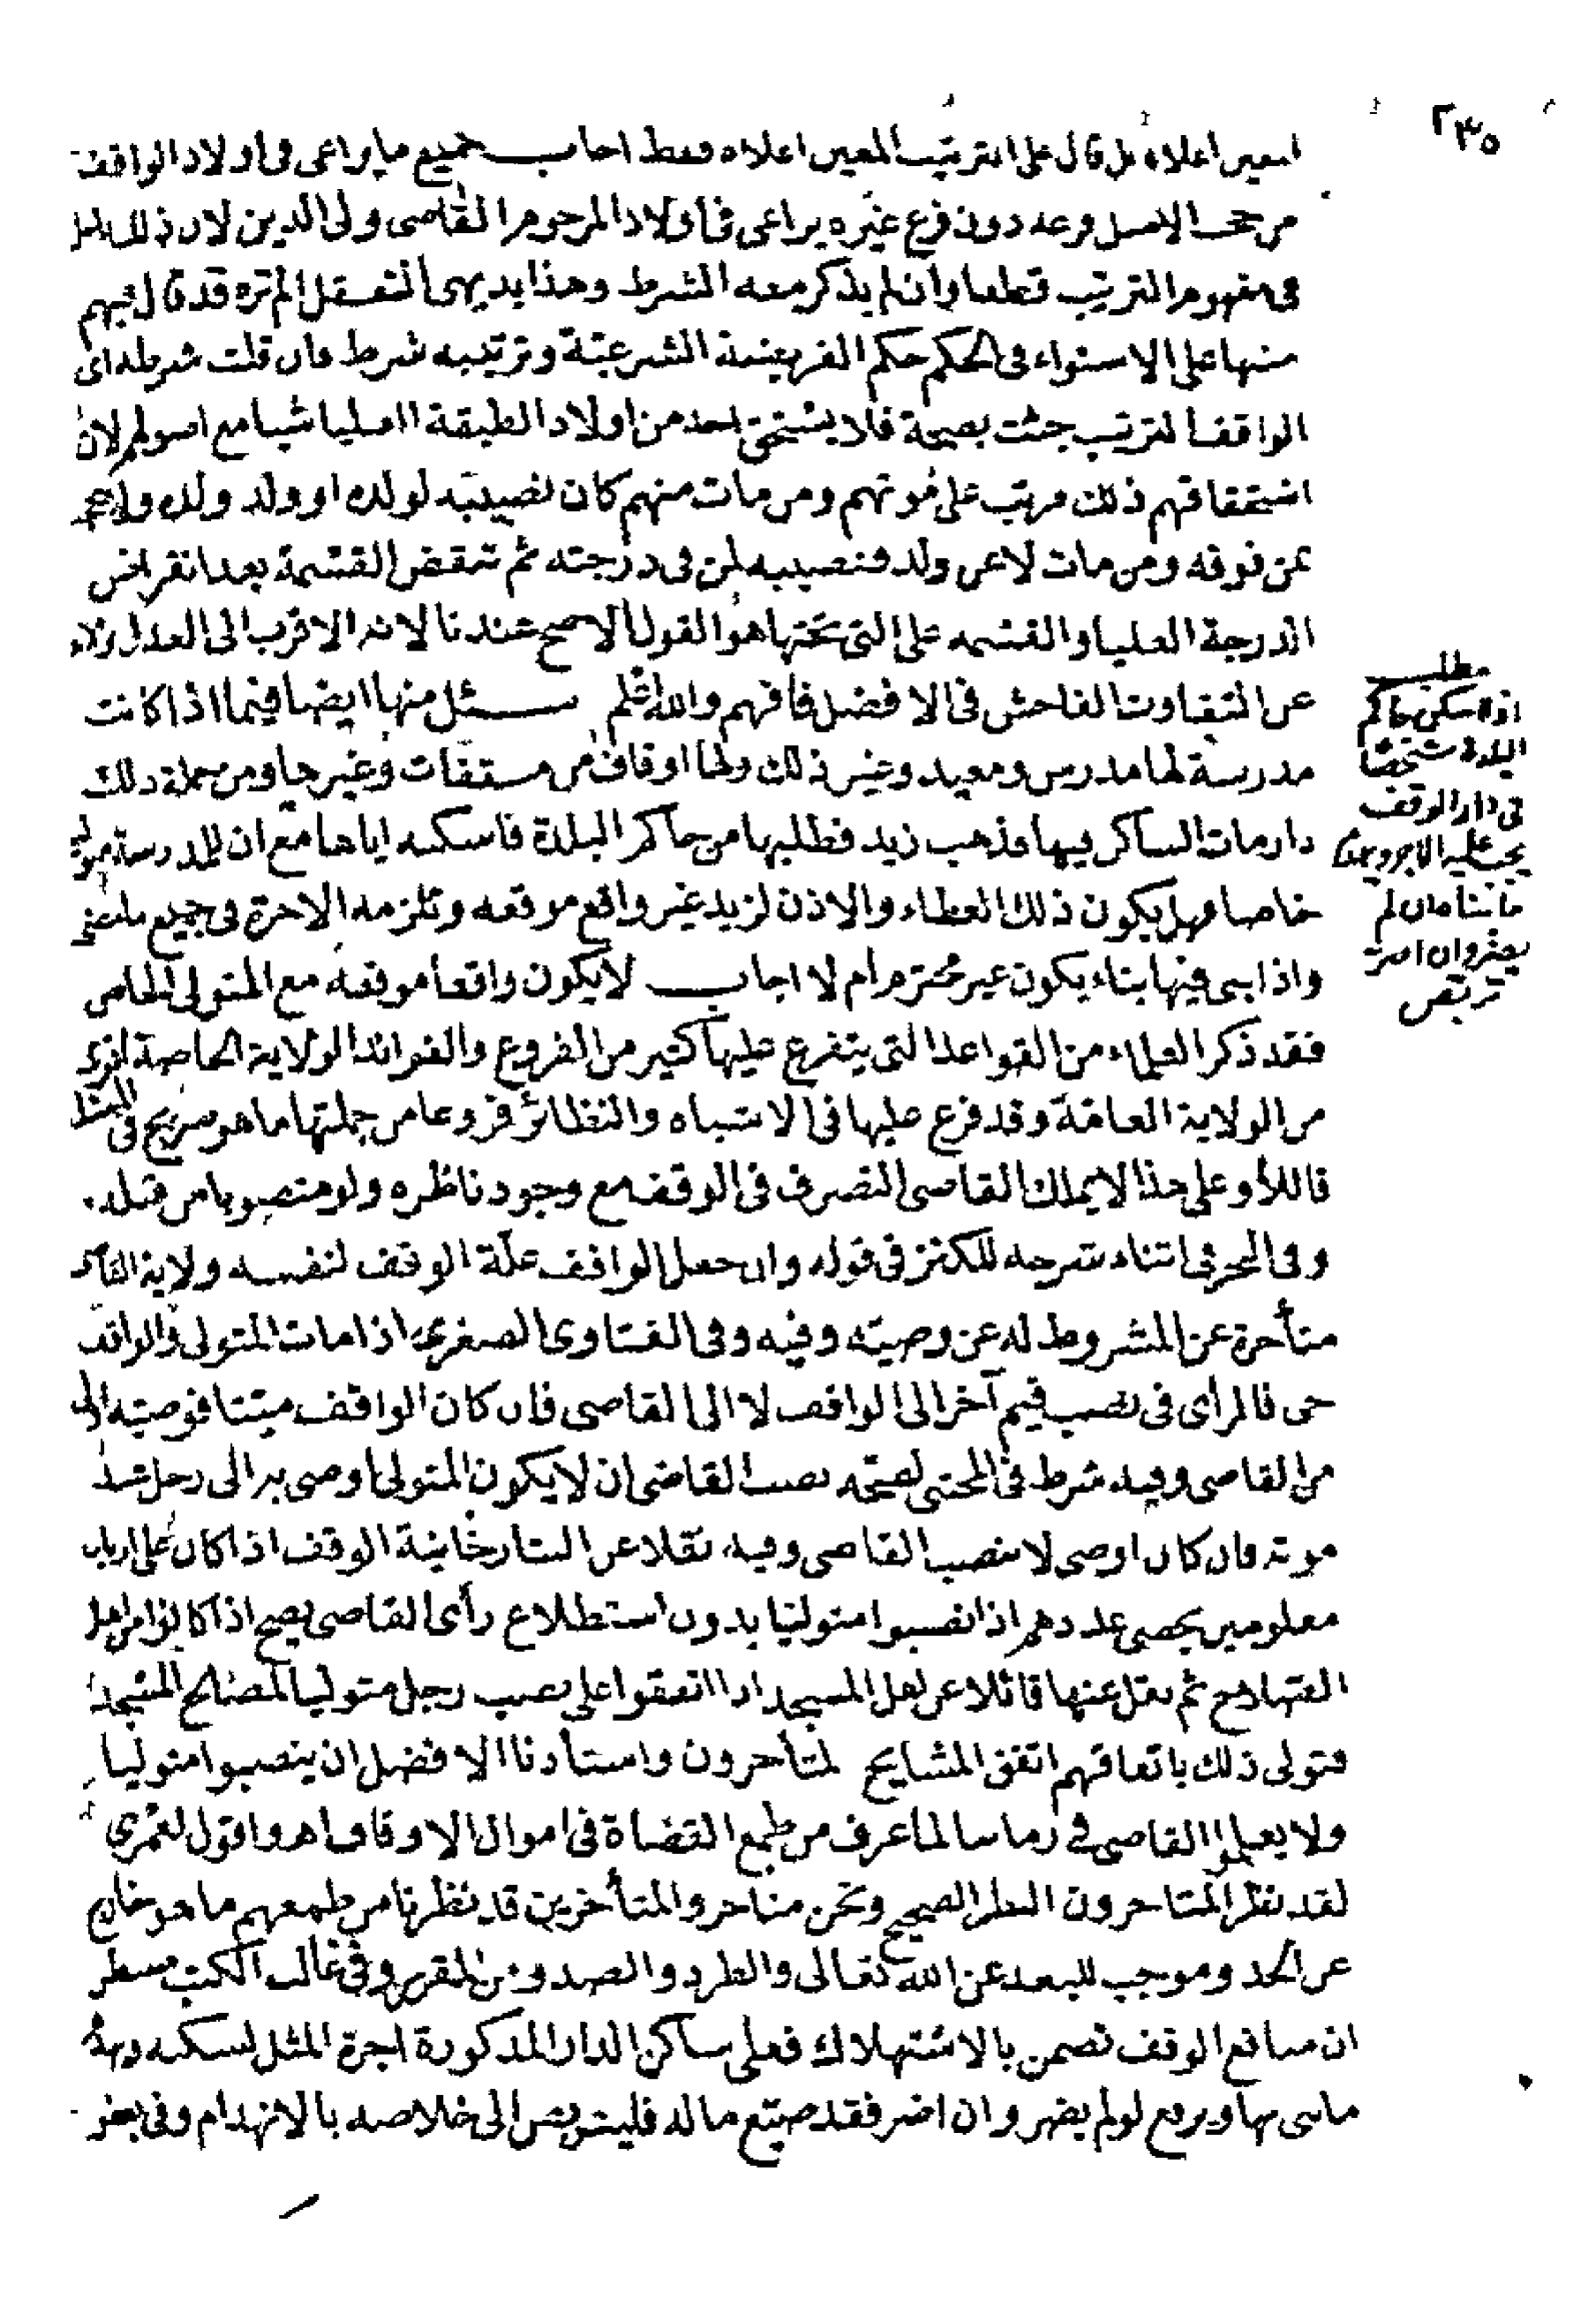 ٢٣٥
المعين اعلاه هل قال على الترتيب المعين اعلاه فقط اجاب جميع ما يراعى فى اولاد الواقف
من حجب الاصل فرعه دون فرع غيره يراعى فى اولاد المرحوم القاضى ولى الدين لان ذلك داخل
فى مفهوم الترتيب قطعا وان لم يذكر معه الشرط وهذا بديهى التعقل الم تره قد قال فيهم
منها على الاستواء فى الحكم حكم الفريضة الشرعية وترتيبه شرط فان قلت شرطه اى
الواقف الترتيب جئت بصحة فلا يستحق احد من اولاد الطبقة العليا شيا مع اصولهم لان
استحقاقهم ذلك مرتب على موتهم ومن مات منهم كان نصيبه لولده او ولد ولده ولا
عمن فوقه ومن مات لا عن ولد فنصيبه لمن فى درجته ثم تنقض القسمة بعد انقراض
الدرجة العليا والقسمه على التى تحتها هو القول الاصح عندنا لانه الاقرب الى العدل
عن التفاوت الفاحش فى الافضل فافهم والله اعلم سئل منها ايضا فيما اذا كانت
مدرسة لها مدرس ومعيد وغير ذلك ولها اوقاف من مسقفات وغيرها ومن جملة ذلك
دار مات الساكن فيها فذهب زيد فطلبها من حاكم البلدة فاسكنه اياها مع ان للمدرسة متولى
خاصا فهل يكون ذلك العطاء والاذن لزيد غير واقع موقعه وتلزمه الاجرة فى جميع ما مضى
واذا بنى فيها بناء يكون غير محترم ام لا اجاب لا يكون واقعا موقعه مع المتولى الخاص
فقد ذكر العلماء من القواعد التى يتفرع عليها كثير من الفروع والفوائد الولاية الخاصة اقوى
من الولاية العامة وقد فرع عليها فى الاشباه والنظائر فروعا من جملتها ما هو صريح فى المسئلة
قال وعلى هذا لا يملك القاضى التصرف فى الوقف مع وجود ناظره ولو منصوبا من قبله
وفى البحر فى اثناء شرحه للكنز فى قوله وان جعل الواقف غلة الوقف لنفسه ولاية القاضى
متأخرة عن المشروط له عن وصيته وفيه وفى الفتاوى الصغرى اذا مات المتولى والواقف
حى فالرأى فى نصب قيم آخر الى الواقف لا الى القاضى فان كان الواقف ميتا فوصيه اولى
من القاضى وفيه شرط فى المجتبى لصحة نصب القاضى ان لا يكون المتولى اوصى به الى رجل عند
موته فان كان اوصى لا ينصب القاضى وفيه نقلا عن التتارخانية الوقف اذا كان على ارباب
معلومين يحصى عددهم اذا نصبوا متوليا بدون استطلاع رأى القاضى يصح اذا كانوا من اهل
الصلاح ثم نقل عنها قائلا عن اهل المسجد اذا اتفقوا على نصب رجل متوليا لمصالح المسجد
فتولى ذلك باتفاقهم اتفق المشايخ المتأخرون واستأذنا الافضل ان ينصبوا متوليا
ولا يعلموا القاضى فى زماننا لما عرف من طمع القضاة فى اموال الاوقاف اهـ واقول لعمرى
لقد نظر المتاخرون النظر الصحيح ونحن متاخروا المتأخرين قد نظرنا من طمعهم ما هو خارج
عن الحد وموجب للبعد عن الله تعالى والطرد والصد ومن المقرر وفى غالب الكتب مسطر
ان منافع الوقف تضمن بالاستهلاك فعلى ساكن الدار المذكورة اجرة المثل لسكنه ويهدم
ما بنى بها ويرفع لو لم يضر وان اضر فقد ضيع ماله فليتربص الى خلاصه بالانهدام وفى بعض
مطلب
اذا اسكن حاكم
البلدة شخصا
فى دار الوقف
يجب عليه الاجر ويهدم
ما بناه ان لم
يضر وان اضر
تربص